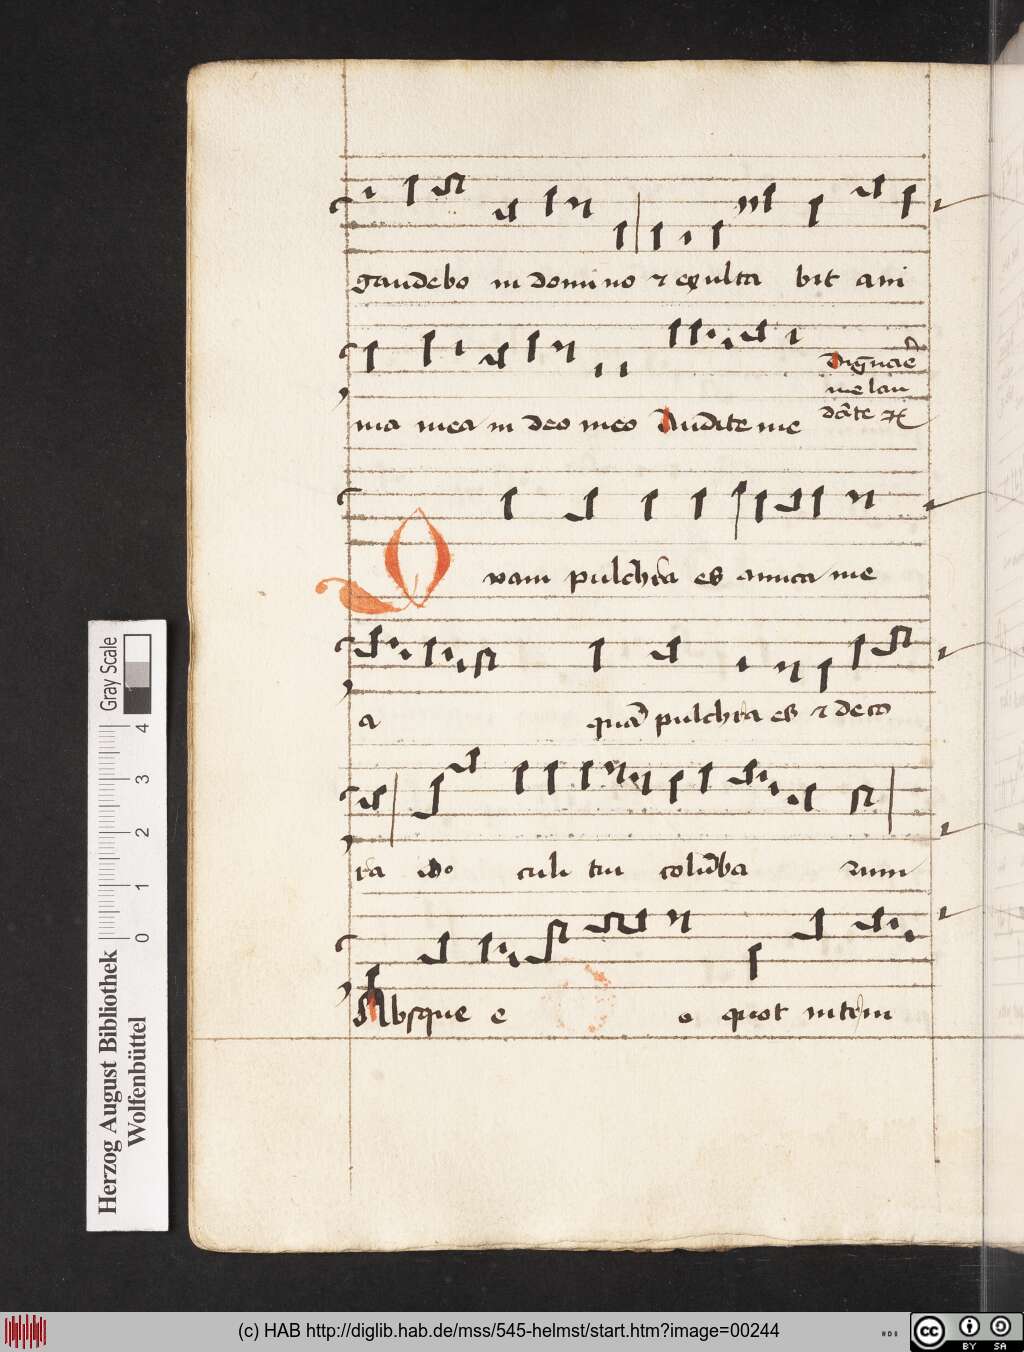 gaudebo in domino ⁊ exulta bit ani
ma mea in deo meo Audite me
Dignare
me lau
dãte ⁊c
Quam pulchra es amica me
a quã pulchra es ⁊ deco
ra culi tui colũba rum
Absque e o quot intrin
Gray Scale
0 1 2 3 4
Herzog August Bibliothek
Wolfenbüttel
(c) HAB http://diglib.hab.de/mss/545-helmst/start.htm?image=00244
cc BY SA